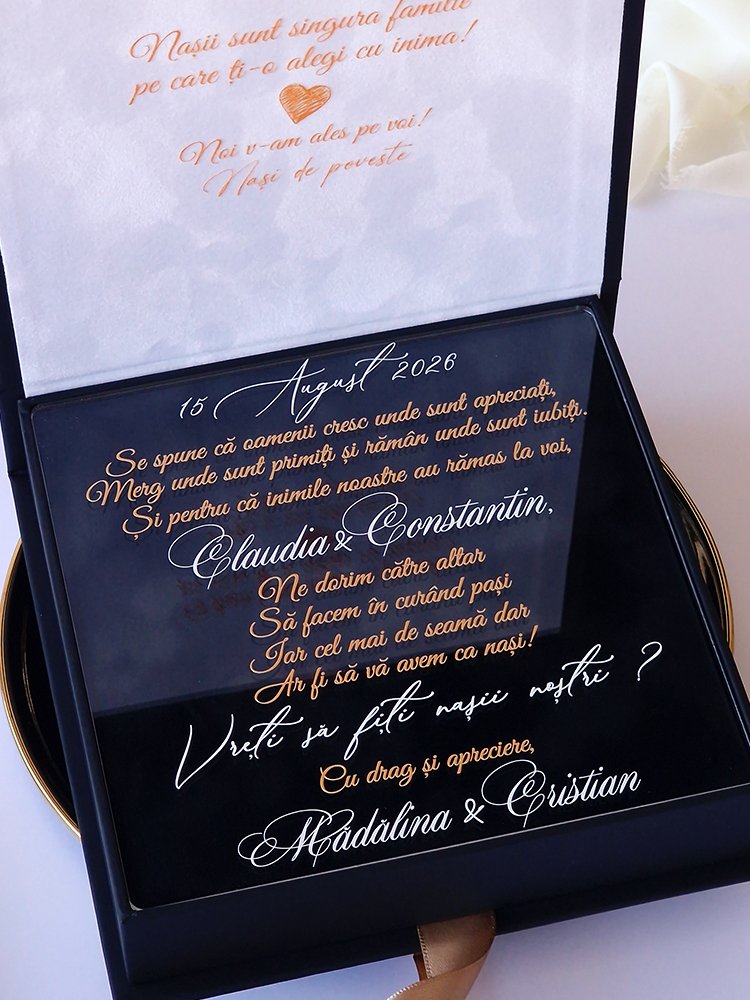 Nașii sunt singura familie
pe care ți-o alegi cu inima!
Noi v-am ales pe voi!
Nași de poveste
15 August 2026
Se spune că oamenii cresc unde sunt apreciați,
Merg unde sunt primiți și rămân unde sunt iubiți.
Și pentru că inimile noastre au rămas la voi,
Claudia & Constantin,
Ne dorim către altar
Să facem în curând pași
Iar cel mai de seamă dar
Ar fi să vă avem ca nași!
Vreți să fiți nașii noștri ?
Cu drag și apreciere,
Mădălina & Cristian